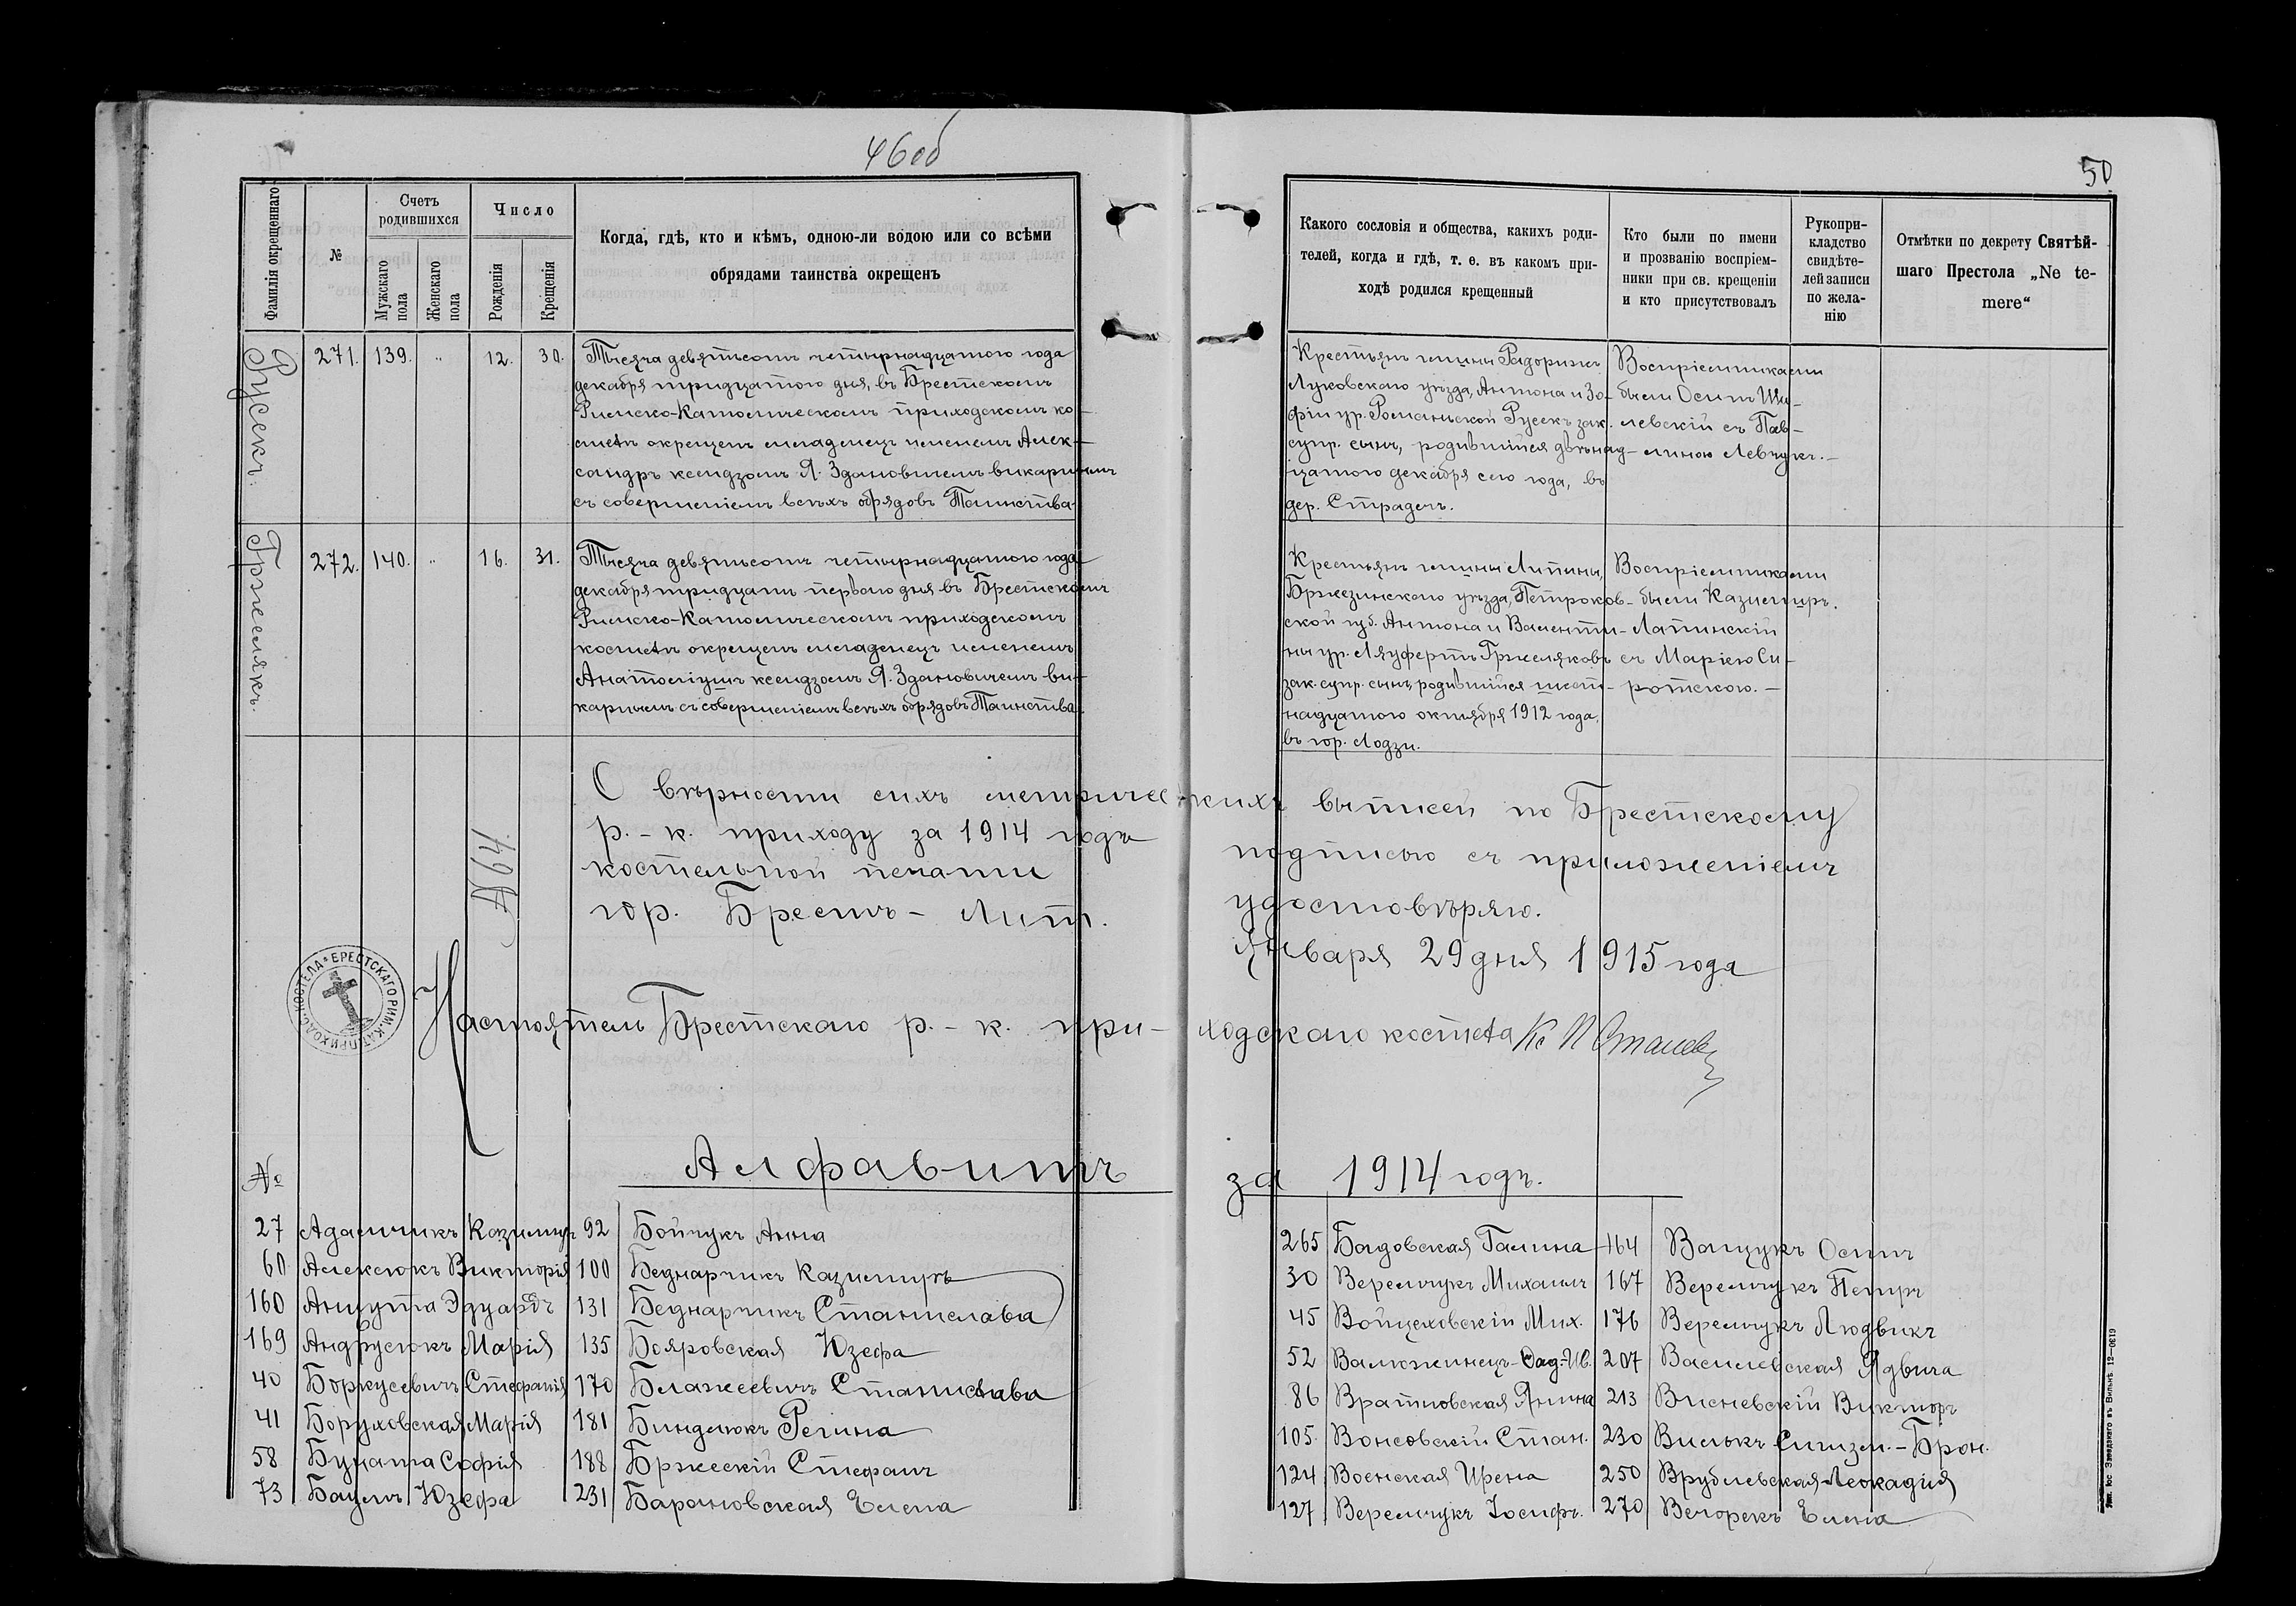 46об
50
Фамилія окрещеннаго
№
Счетъ
родившихся
Мужскаго
пола
Женскаго
пола
Число
Рожденія
Крещенія
Когда, гдѣ, кто и кѣмъ, одною-ли водою или со всѣми
обрядами таинства окрещенъ
Русекъ.
271. 139. „ 12. 30.
Тысяча девятьсотъ четырнадцатого года
декабря тридцатого дня, въ Брестскомъ
Римско-Католическомъ приходскомъ ко-
стелѣ окрещенъ младенецъ именемъ Алек-
сандръ ксендзомъ Я. Здановичемъ викаріемъ
съ совершеніемъ всѣхъ обрядовъ Таинства.
Гржелякъ.
272. 140. „ 16. 31.
Тысяча девятьсотъ четырнадцатого года
декабря тридцать первого дня въ Брестскомъ
Римско-Католическомъ приходскомъ
костелѣ окрещенъ младенецъ именемъ
Анатоліушъ ксендзомъ Я. Здановичемъ ви-
каріемъ съ совершеніемъ всѣхъ обрядовъ Таинства.
Какого сословія и общества, какихъ роди-
телей, когда и гдѣ, т. е. въ какомъ при-
ходѣ родился крещенный
Кто были по имени
и прозванію воспріем-
ники при св. крещеніи
и кто присутствовалъ
Рукопри-
кладство
свидѣте-
лей записи
по жела-
нію
Отмѣтки по декрету Святѣй-
шаго Престола „Ne te-
mere“
Крестьянъ гмины Радорижъ
Луковскаго уѣзда, Антона и Зо-
фіи ур. Романьской Русекъ зак.
супр. сынъ, родившійся двѣнад-
цатого декабря сего года, въ
дер. Страдечъ.
Воспріемниками
были Осипъ Ши-
левскій съ Пав-
линою Левчукъ.—
Крестьянъ гмины Липины,
Бржезинскаго уѣзда, Петроков-
ской губ. Антона и Валенти-
ны ур. Ляуфертъ Гржеляковъ
зак. супр. сынъ, родившійся шест-
надцатого октября 1912 года,
въ гор. Лодзи.
Воспріемниками
были Казимиръ
Лапинскій
съ Маріею Си-
ротскою.—
О вѣрности сихъ метрическихъ выписей по Брестскому
р.-к. приходу за 1914 годъ подписью съ приложеніемъ
костельной печати удостовѣряю.
гор. Брестъ-Лит. Января 29 дня 1915 года
Настоятель Брестскаго р.-к. приходскаго костела Кс
БРЕСТСКАГО РИМ. КАТ. ПРИХОДС. КОСТЕЛА
Алфавитъ за 1914 годъ.
№
27 Адамчикъ Казимиръ 92 Бойчукъ Анна
60 Алексюкъ Викторія 100 Беднарчикъ Казимиръ
160 Анцута Эдуардъ 131 Беднарчикъ Станислава
169 Андрусюкъ Марія 135 Бояровская Юзефа
40 Боркусевичъ Стефанія 170 Блажеевичъ Станислава
41 Боруховская Марія 181 Биндюкъ Регина
58 Буната Софія 188 Бржескій Стефанъ
73 Бауманъ Юзефа 231 Барановская Елена
265 Бадовская Галина 164 Ващукъ Осипъ
30 Веремчукъ Михаилъ 167 Веремчукъ Петръ
45 Войцеховскій Мих. 176 Веремчукъ Людвикъ
52 Валюжинецъ-Фад.-Ив. 207 Василевская Ядвига
86 Вратновская Янина 213 Висневскій Викторъ
105 Вонсовскій Стан. 230 Вилькъ Сигизм.-Брон.
124 Военская Ирена 250 Врублевская Леокадія
127 Веремчукъ Іосифъ. 270 Вечорекъ Елена